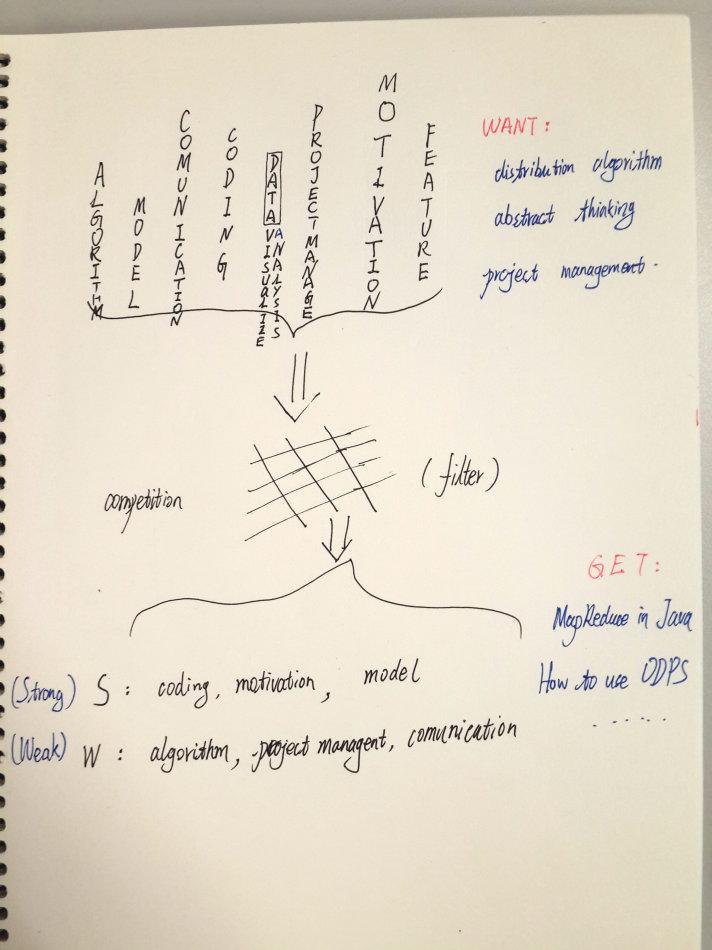 ALGORITHM
MODEL
COMUNICATION
CODING
DATA
VISUALIZE
ANALYSIS
PROJECT MANAGE
MOTIVATION
FEATURE
WANT:
distribution algorithm
abstract thinking
project management.
competition
(filter)
GET:
MapReduce in Java
How to use ODPS
......
(Strong) S: coding, motivation, model
(Weak) W: algorithm, project managent, comunication